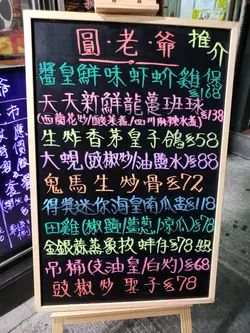 圓·老·爺 推介
醬皇鮮味虾蚧雞保 168
天天新鮮龍躉班球
(西蘭花炒/酸菜煮/四川麻辣水煮) 138
生炸香茅皇子鴿 58
大蜆(豉椒炒/油鹽水) 88
鬼馬生炒骨 72
得獎迷你海皇南瓜盅 118
田雞(椒鹽/薑葱/凉瓜) 78
金銀蒜蒸象拔蚌仔 78
吊桶(豉油皇/白灼) 68
豉椒炒聖子 78